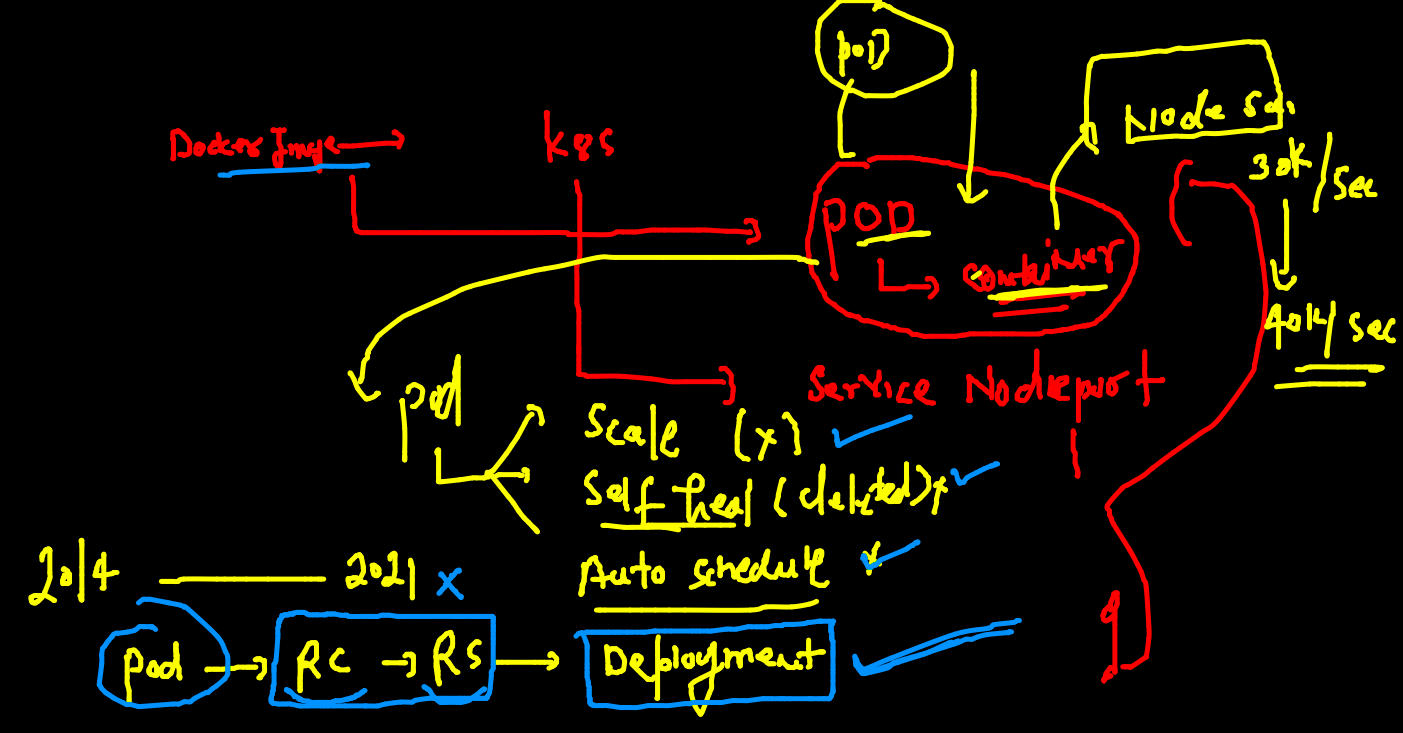 pod
Node Se.
Docker Image
k8s
30K/sec
POD
container
40K/sec
Service Nodeport
Pod
Scale (x)
Self heal (deleted) x
Auto schedule x
2014
2021 x
Pod → RC → RS → Deployment